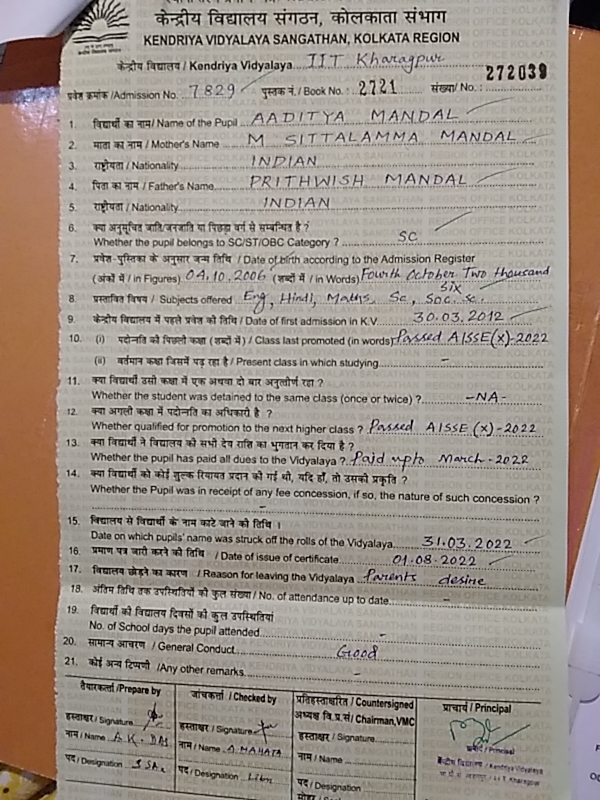 केन्द्रीय विद्यालय संगठन, कोलकाता संभाग
KENDRIYA VIDYALAYA SANGATHAN, KOLKATA REGION
केन्द्रीय विद्यालय / Kendriya Vidyalaya IIT Kharagpur
272039
प्रवेश क्रमांक/Admission No. 7829 पुस्तक नं. / Book No. : 2721 संख्या/ No. :
1. विद्यार्थी का नाम/ Name of the Pupil AADITYA MANDAL
2. माता का नाम / Mother's Name M SITTALAMMA MANDAL
3. राष्ट्रीयता / Nationality INDIAN
4. पिता का नाम / Father's Name PRITHWISH MANDAL
5. राष्ट्रीयता / Nationality INDIAN
6. क्या अनुसूचित जाति/जनजाति या पिछड़ा वर्ग से सम्बन्धित है ?
Whether the pupil belongs to SC/ST/OBC Category ? SC
7. प्रवेश-पुस्तिका के अनुसार जन्म तिथि / Date of birth according to the Admission Register
(अंकों में / in Figures) 04.10.2006 (शब्दों में / in Words) Fourth October Two thousand
six
8. प्रस्तावित विषय / Subjects offered Eng, Hindi, Maths, Sc, Soc. Sc.
9. केन्द्रीय विद्यालय में पहले प्रवेश की तिथि / Date of first admission in K.V. 30.03.2012
10. (i) पदोन्नति की पिछली कक्षा (शब्दों में) / Class last promoted (in words) Passed AISSE(X)-2022
(ii) वर्तमान कक्षा जिसमें पढ़ रहा है / Present class in which studying -
11. क्या विद्यार्थी उसी कक्षा में एक अथवा दो बार अनुत्तीर्ण रहा ?
Whether the student was detained to the same class (once or twice) ? -NA-
12. क्या अगली कक्षा में पदोन्नति का अधिकारी है ?
Whether qualified for promotion to the next higher class ? Passed AISSE (X)-2022
13. क्या विद्यार्थी ने विद्यालय की सभी देय राशि का भुगतान कर दिया है ?
Whether the pupil has paid all dues to the Vidyalaya ? Paid upto March-2022
14. क्या विद्यार्थी को कोई शुल्क रियायत प्रदान की गई थी, यदि हाँ, तो उसकी प्रकृति ?
Whether the Pupil was in receipt of any fee concession, if so, the nature of such concession ?
-
15. विद्यालय से विद्यार्थी के नाम काटे जाने की तिथि ।
Date on which pupils' name was struck off the rolls of the Vidyalaya 31.03.2022
16. प्रमाण पत्र जारी करने की तिथि / Date of issue of certificate 01.08.2022
17. विद्यालय छोड़ने का कारण / Reason for leaving the Vidyalaya Parents desire
18. अंतिम तिथि तक उपस्थितियों की कुल संख्या / No. of attendance up to date -
19. विद्यार्थी की विद्यालय दिवसों की कुल उपस्थितियां
No. of School days the pupil attended -
20. सामान्य आचरण / General Conduct Good
21. कोई अन्य टिप्पणी /Any other remarks -
तैयारकर्ता/Prepare by जांचकर्ता / Checked by प्रतिहस्ताक्षरित / Countersigned प्राचार्य / Principal
अध्यक्ष वि.प्र.सं/ Chairman,VMC
हस्ताक्षर / Signature हस्ताक्षर / Signature हस्ताक्षर / Signature
नाम / Name A.K. DAS नाम / Name A MAHATA नाम / Name
प्राचार्य / Principal
केन्द्रीय विद्यालय / Kendriya Vidyalaya
पद / Designation पद / Designation Libn पद / Designation